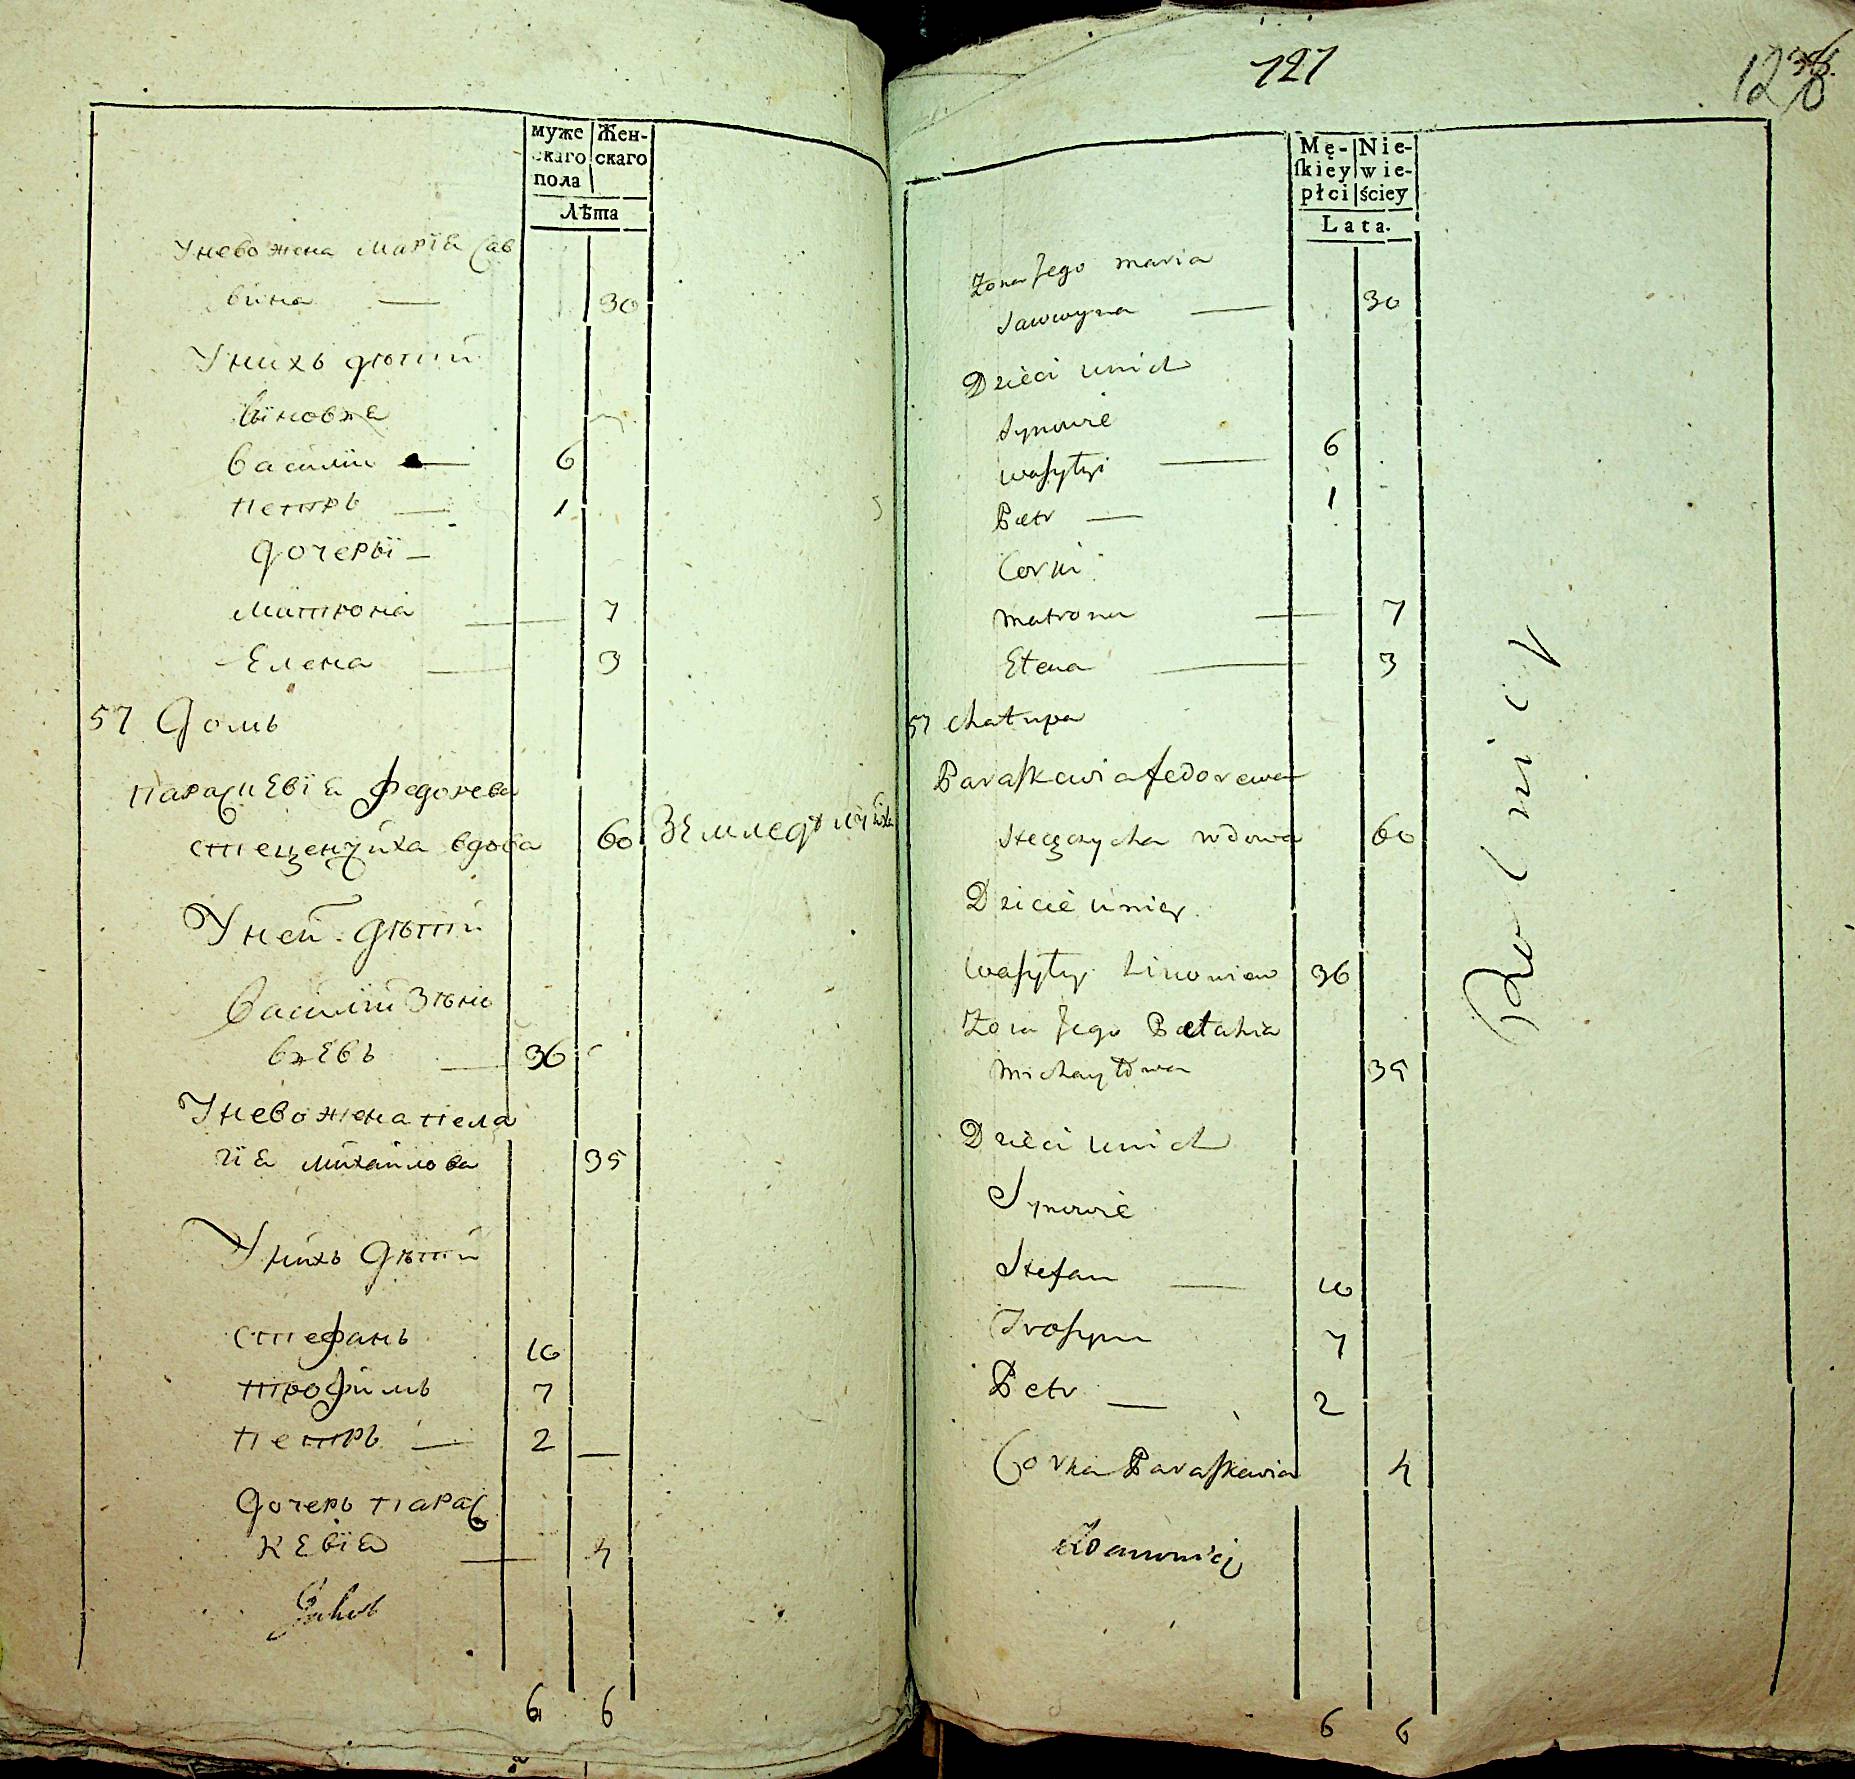 муже
скаго
пола
Жен-
скаго
Лѣта
У нево жена Мария Сав
вина — 30
У нихъ дѣтий
Сыновя
Василий — 6
Петръ — 1
Дочеры —
Митрона — 7
Елена — 3
57 Домъ
Параскевия Федорева
стеценчиха вдова 60
У ней дѣтий
Василий Зѣно
вѣевъ — 36
У нево жена пела
гия Михайлова 35
У нихъ дѣтий
Стефанъ 10
Трофимъ 7
Петръ — 2 —
Дочеръ Парас
кевия — 4
6 6
127
Mę-
ſkiey
płci
Nie-
wie-
ściey
Lata.
Żona Jego Maria
Sawwyna — 30
Dzieci u nich
Synowie
Wasyłyi — 6
Petr — 1
Corki
Matrona — 7
Ełena — 3
57 Chałupa
Paraskewia Fedorewa
Steczycha wdowa 60
Dzicie u niey
Wasyłyi Zinowiew 36
Żona Jego Pełahia
Michayłowa 35
Dzieci u nich
Synowie
Stefan — 10
Trofym 7
Petr — 2
Corka Paraskewia 4
6 6
Rolnicy